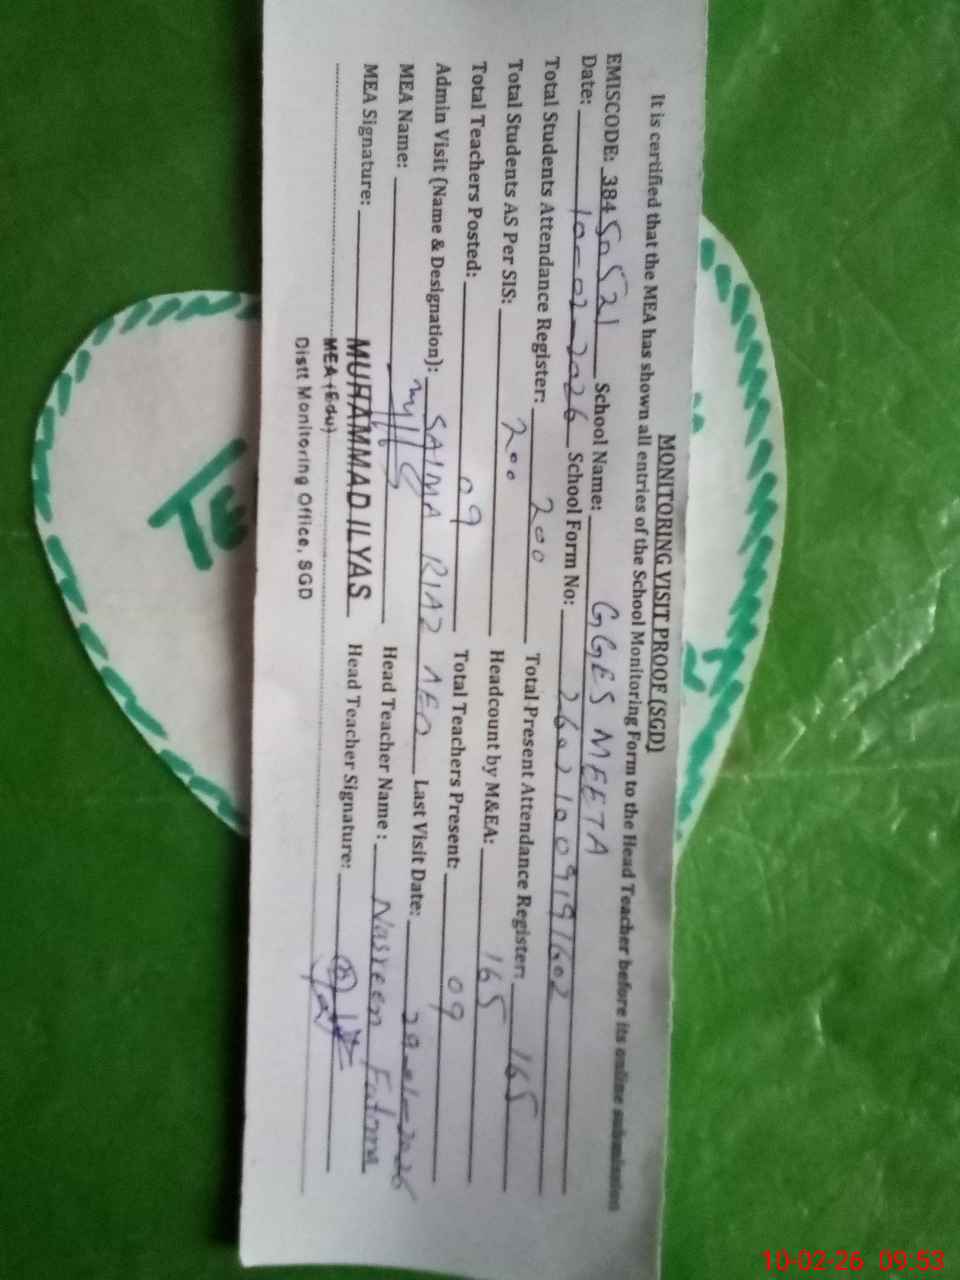 MONITORING VISIT PROOF (SGD)
It is certified that the MEA has shown all entries of the School Monitoring Form to the Head Teacher before its online submission
EMISCODE: 38450521 School Name: GGES MEETA
Date: 10-02-2026 School Form No: 26021009191602
Total Students Attendance Register: 200 Total Present Attendance Register: 165
Total Students AS Per SIS: 200 Headcount by M&EA: 165
Total Teachers Posted: 09 Total Teachers Present: 09
Admin Visit (Name & Designation): SAIMA RIAZ AEO Last Visit Date: 29-01-2026
MEA Name: Head Teacher Name : Nasreen Fatima
MEA Signature: MUHAMMAD ILYAS Head Teacher Signature:
MEA (Edu)
Distt Monitoring Office, SGD
TE
10-02-26 09:53